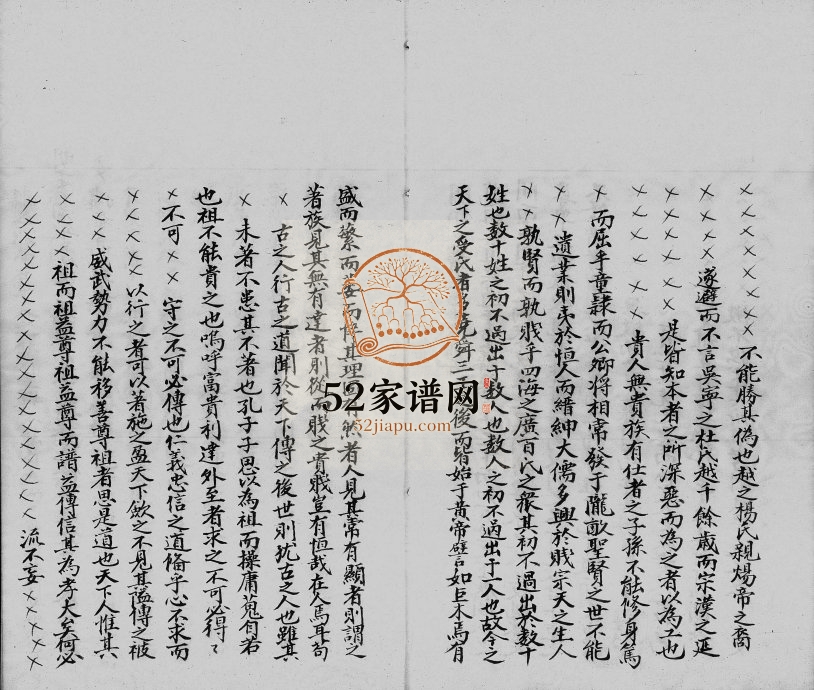 ××××××××不能勝其偽也越之楊氏親煬帝之裔
××××遂避而不言吳寧之杜氏越千餘歲而宗漢之延
××××××是皆知本者之所深惡而為之者以為工也
××××××××貴人無貴族有仕者之子孫不能修身篤
×而屈乎童隸而公卿將相常發于隴畝聖賢之世不能
×遺業則夷於恒人而縉紳大儒多興於賤宗天之生人
××孰賢而孰賤乎四海之廣百氏之衆其初不過出於數十
姓也數十姓之初不過出于數人也數人之初不過出于一人也故今之
天下之受氏者多堯舜三王後而皆始于黃帝譬如巨木焉有
盛而蘩而其理固然者人見其常有顯者則謂之
著族見其無有達者則從而賤之貴賤豈有恒哉在人焉耳苟
×古之人行古之道聞於天下傳之後世則犹古之人也雖其
×未著不患其不著也孔子子思以為祖而操庸蒐自若
也祖不能貴之也嗚呼富貴利達外至者求之不可必得
×不可××守之不可必傳也仁義忠信之道備乎心不求而
××××以行之者可以著施之盈天下斂之不見其隘傳之被
×××威武勢力不能移善尊祖者思是道也天下人惟其
××祖而祖益尊祖益尊而譜益傳信其為孝大矣何必
××××××××××××流不妄××××
52家谱网
52jiapu.com